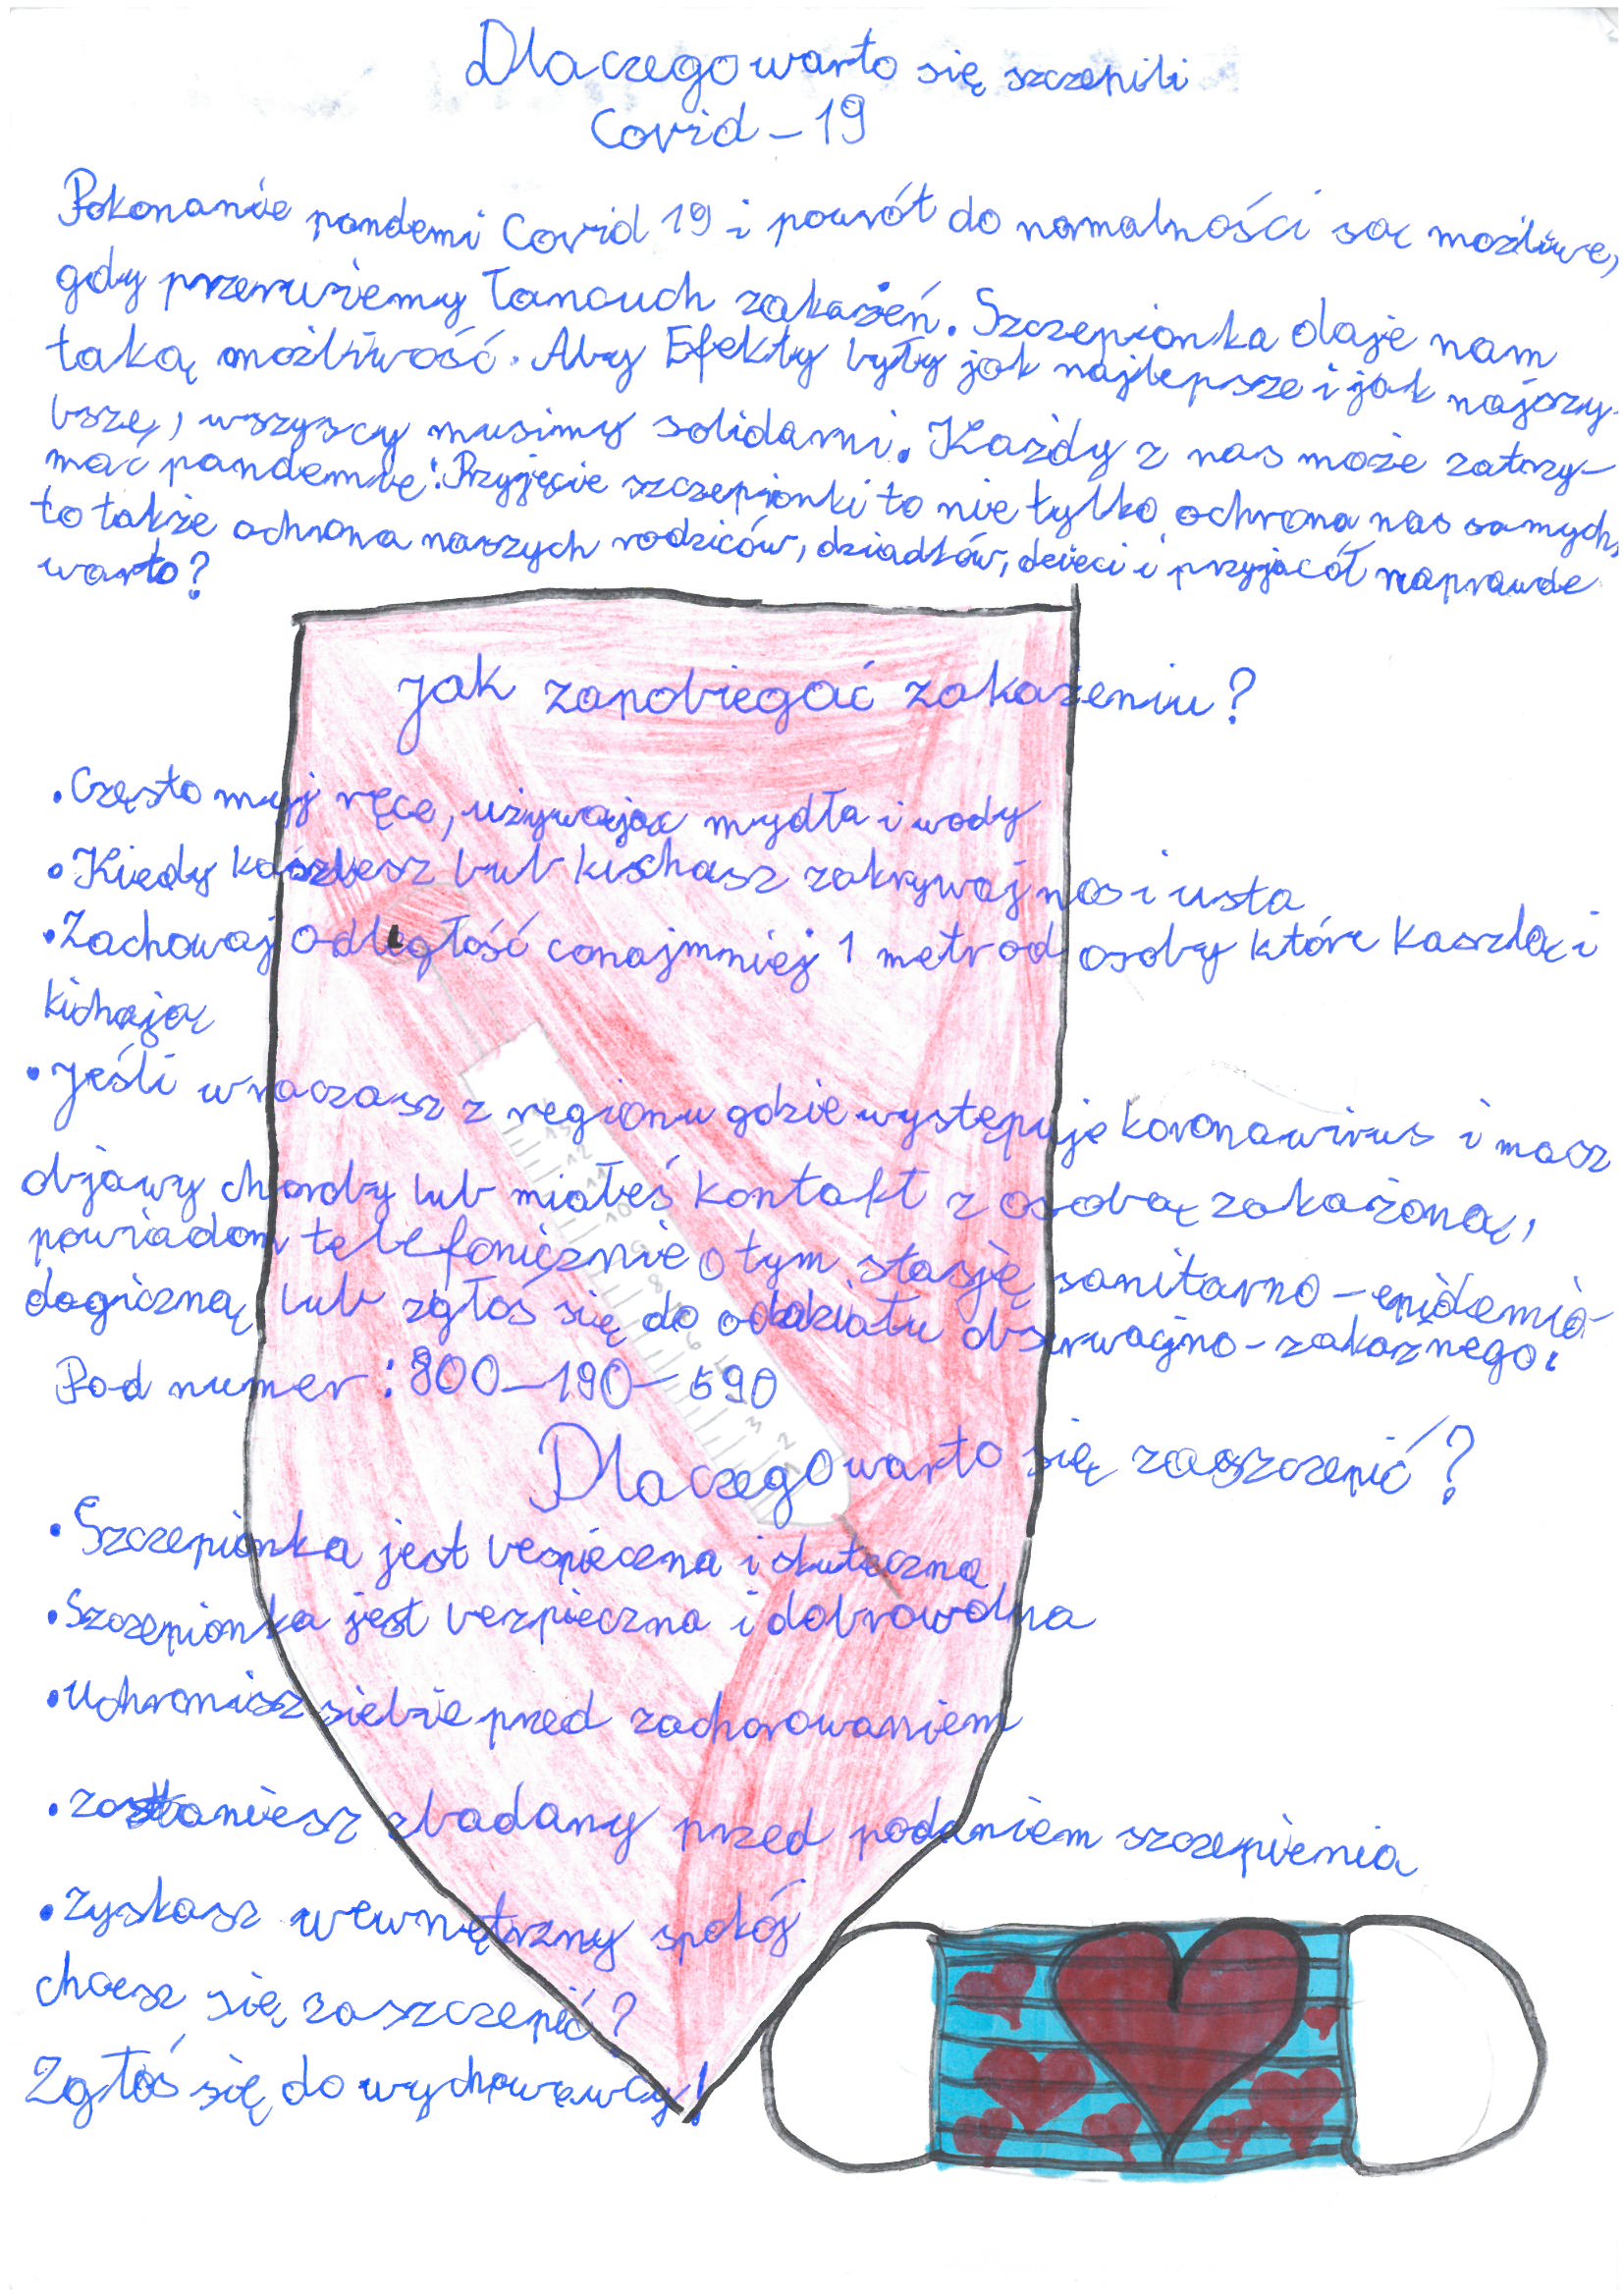 Dlaczego warto się szczepili
Covid-19
Pokonanie pandemi Covid 19 i powrót do normalności są możliwe,
gdy przerwiemy łancuch zakażeń. Szczepionka daje nam
taką możliwość. Aby Efekty były jak najlepsze i jak najszy-
bsze, wszyscy musimy solidarni. Każdy z nas może zatrzy-
mać pandemię! Przyjęcie szczepionki to nie tylko ochrona nas samych,
to także ochrona naszych rodziców, dziadków, dzieci i przyjacół naprawde
warto?
jak zapobiegać zakażeniu?
• Często myj ręce, używając mydła i wody
• Kiedy kaszlesz lub kichasz zakrywaj nos i usta
• Zachowaj odległość conajmniej 1 metr od osoby które kaszlą i
kichają
• jeśli wracasz z regionu gdzie występuje koronawirus i masz
objawy choroby lub miałeś kontakt z osobą zakażoną,
powiadom telefonicznie o tym stasję sanitarno-epidemio-
logiczną lub zgłoś się do oddziału obserwacjno-zakaznego.
Pod numer: 800-190-590
13
12
11
10
9
8
7
6
5
3
2
Dlaczego warto się zaszczepić?
• Szczepionka jest bespieczna i skuteczna
• Szczepionka jest bezpieczna i dobrowolna
• Uchronisz siebie przed zachorowaniem
• zostaniesz zbadany przed podaniem szczepienia
• zyskasz wewnętrzny spokój
chcesz się zaszczepić?
Zgłoś się do wychowawcy!